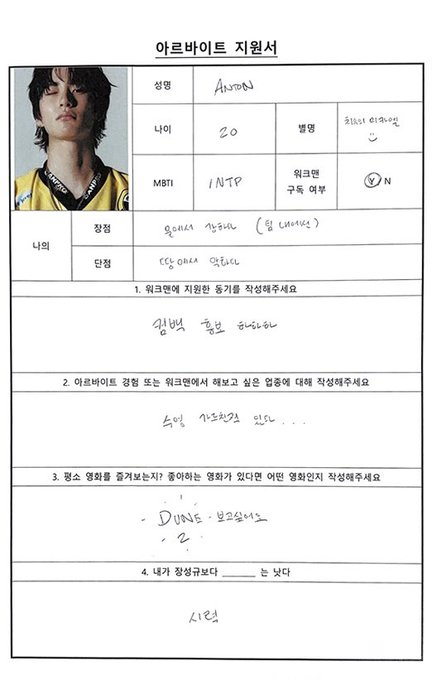 아르바이트 지원서
성명 ANTON
나이 20 별명 최소의 미카엘
MBTI INTP 워크맨 구독 여부 Y N
나의 장점 물에서 강하다 (팀 내에선)
단점 땅에서 약하다
1. 워크맨에 지원한 동기를 작성해주세요
컴백 홍보 하하하
2. 아르바이트 경험 또는 워크맨에서 해보고 싶은 업종에 대해 작성해주세요
수영 가르친적 있다...
3. 평소 영화를 즐겨보는지? 좋아하는 영화가 있다면 어떤 영화인지 작성해주세요
DUNE 보고싶어요
2
4. 내가 장성규보다 ______ 는 낫다
시력